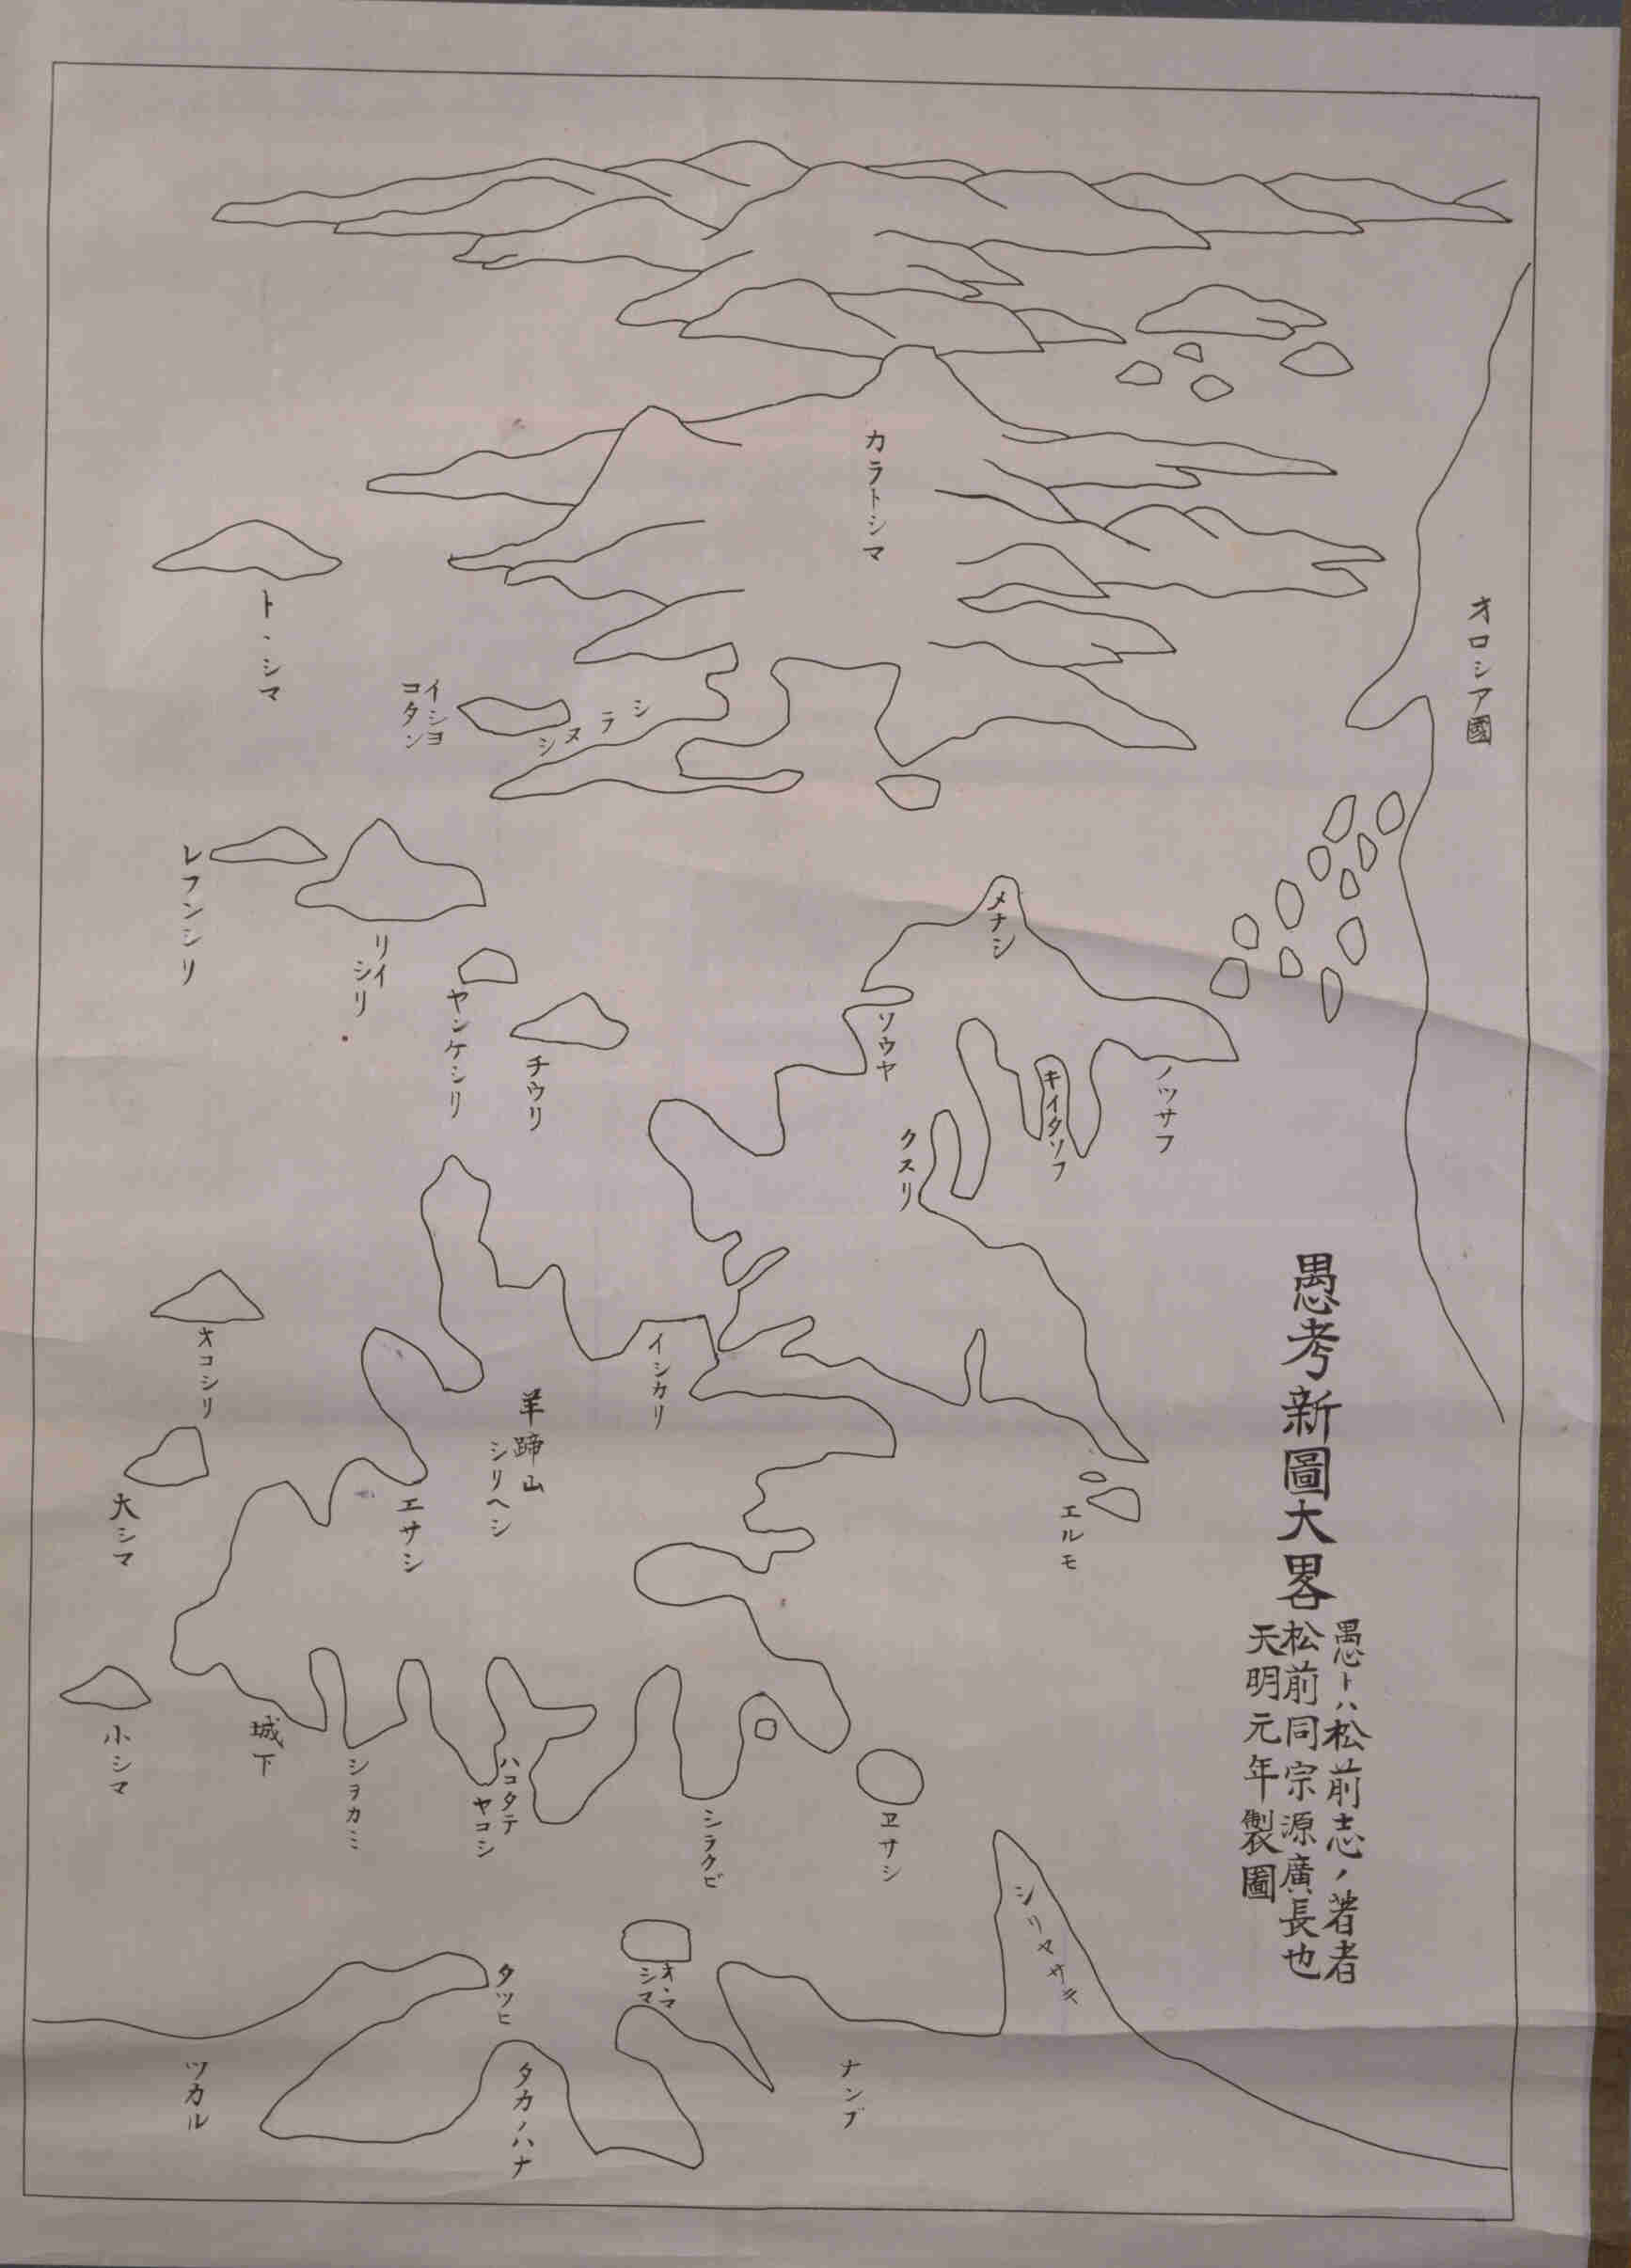 愚考新圖大畧
愚トハ松前志ノ著者
松前同宗源廣長也
天明元年製圖
オロシア國
カラトシマ
トヽシマ
イシヨ
コタン
シラヌシ
レフンシリ
リイ
シリ
ヤンケシリ
チウリ
メナシ
ソウヤ
ノツサフ
キイタツフ
クスリ
イシカリ
オコシリ
羊蹄山
シリヘシ
大シマ
エサシ
エルモ
小シマ
城下
シヲカミ
ハコタテ
ヤコシ
シラクビ
ヱサシ
シリヤサキ
オヽマ
シマ
タツヒ
ツカル
タカノハナ
ナンブ